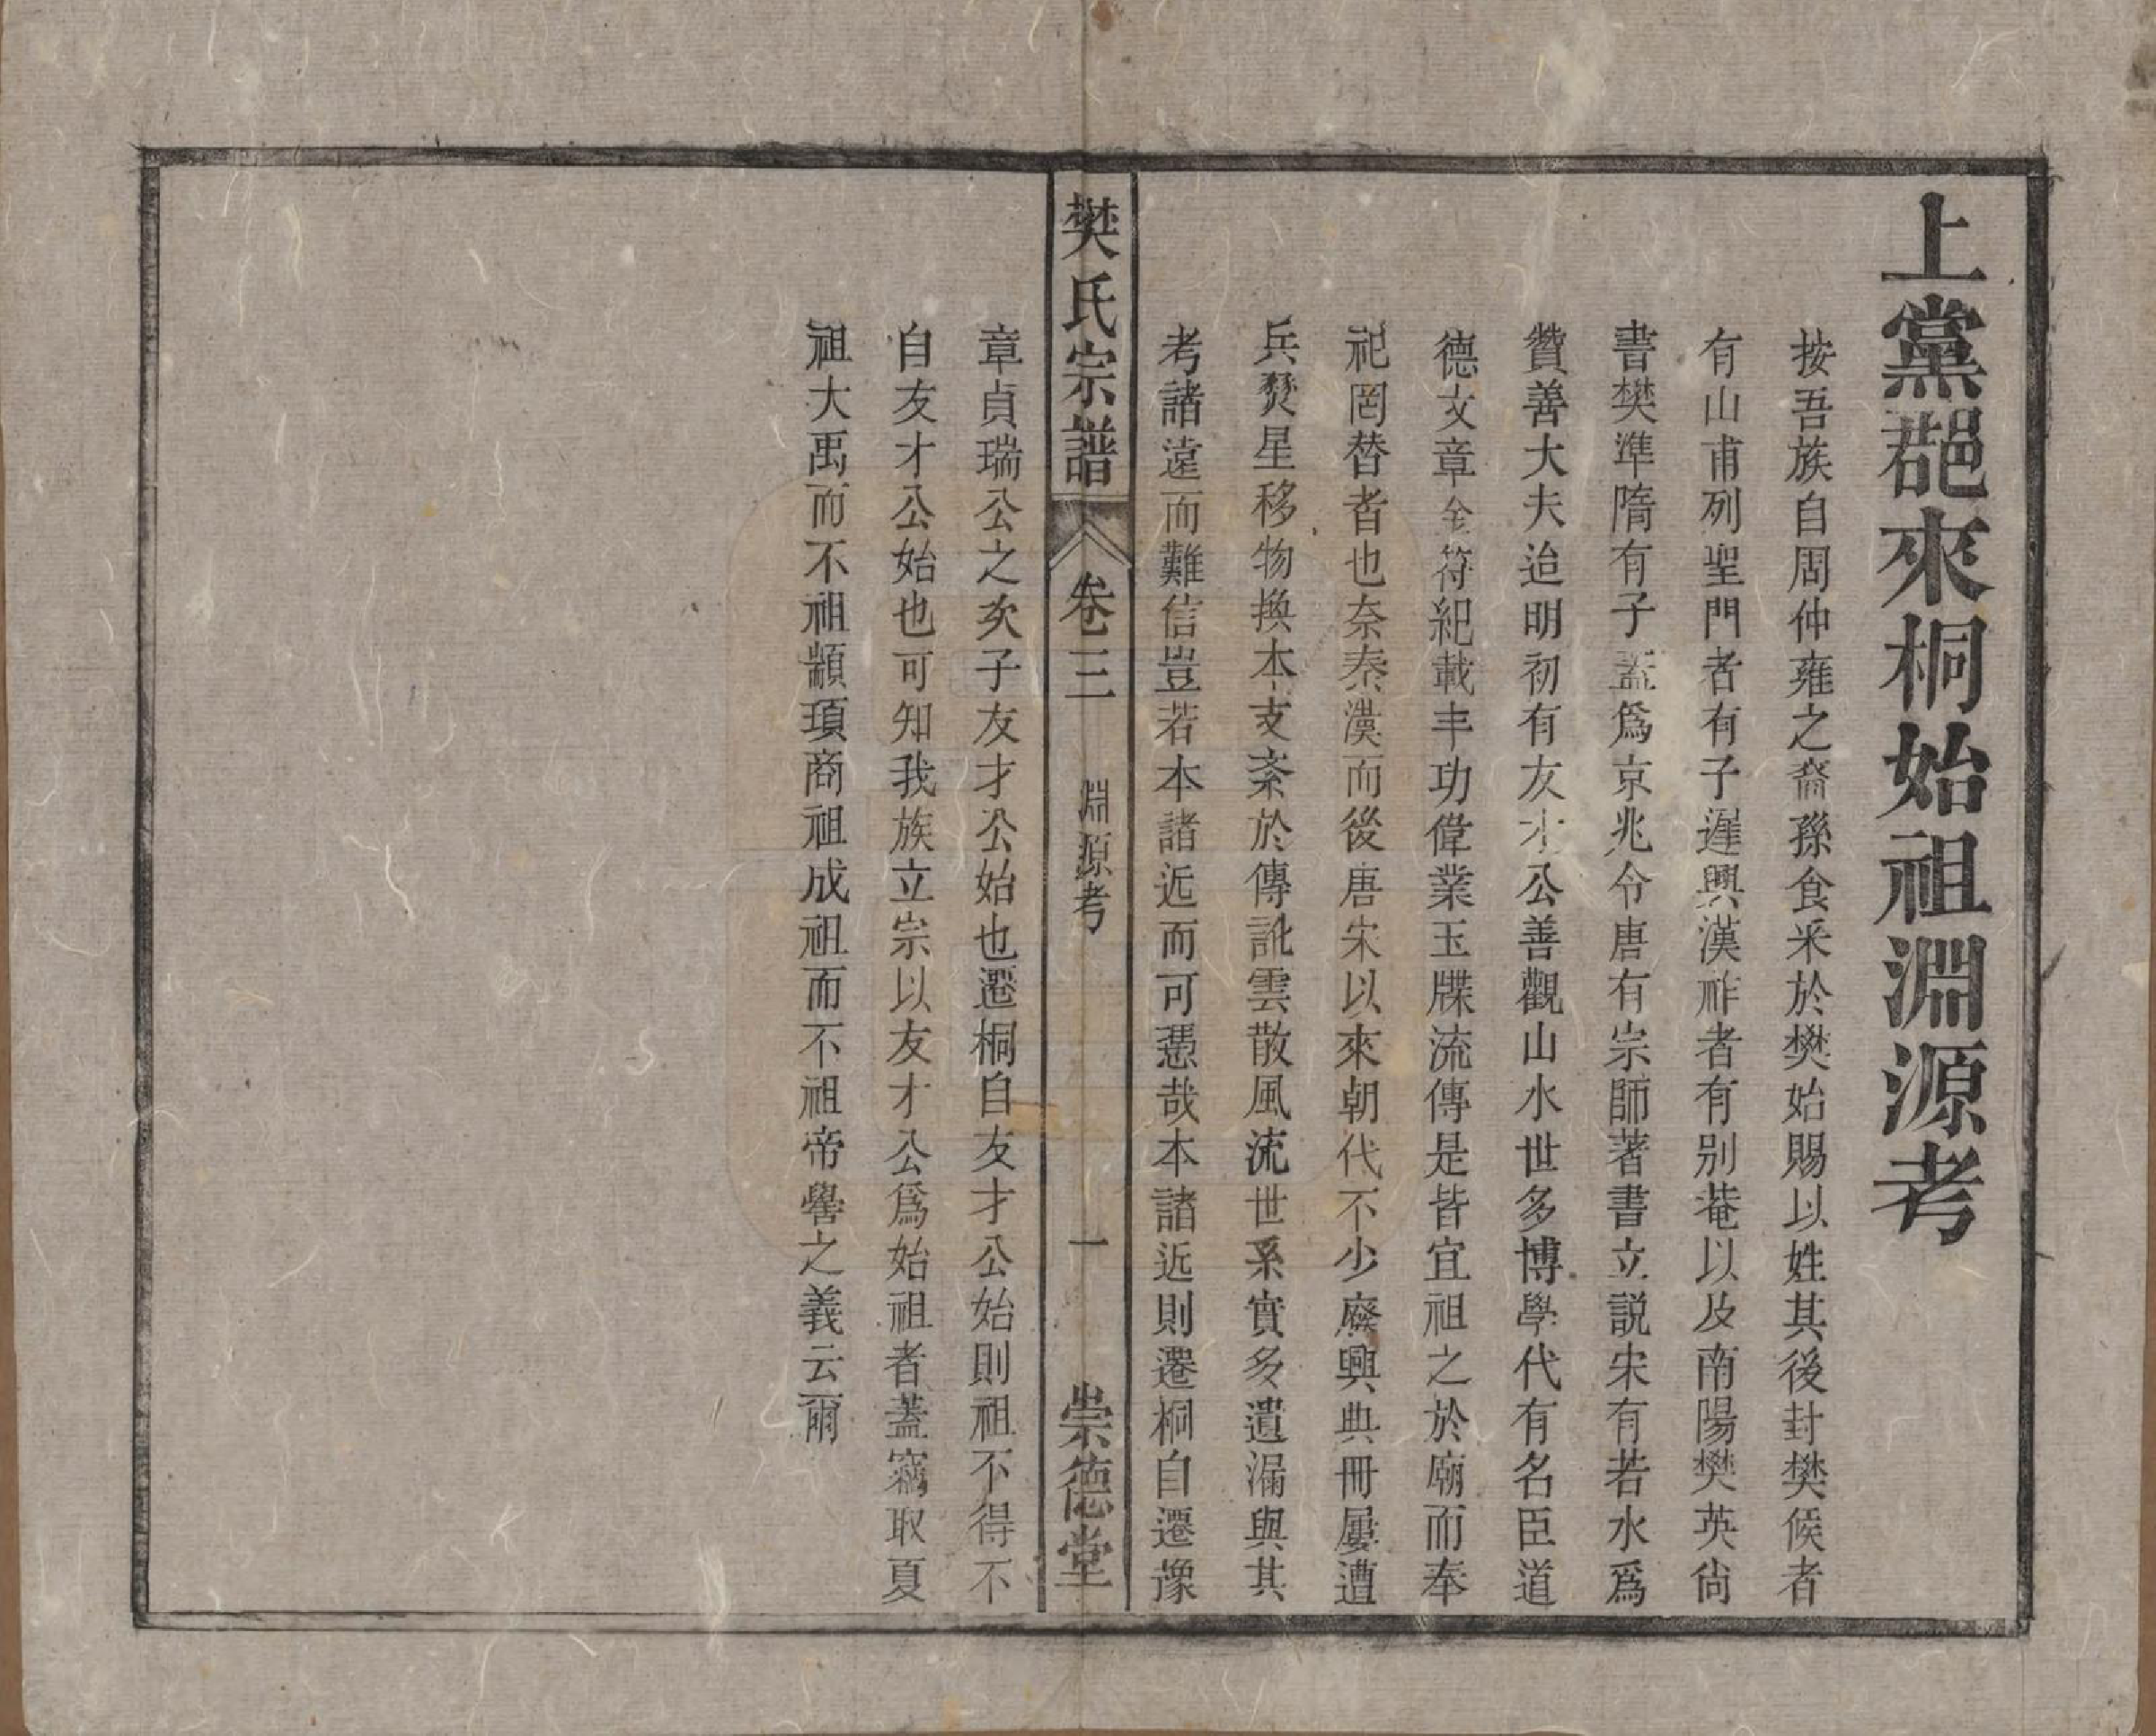 上黨郡來桐始祖淵源考
按吾族自周仲雍之裔孫食釆於樊始賜以姓其後封樊侯者
有山甫列聖門者有子遲興漢祚者有別菴以及南陽樊英尙
書樊準隋有子蓋爲京兆令唐有宗師著書立説宋有若水爲
贊善大夫迨明初有友才公善觀山水世多博學代有名臣道
德文章金符紀載丰功偉業玉牒流傳是皆宜祖之於廟而奉
祀罔替者也奈秦漢而後唐宋以來朝代不少廢興典冊屢遭
兵燹星移物換本支紊於傳訛雲散風流世系實多遺漏與其
考諸遠而難信豈若本諸近而可憑哉本諸近則遷桐自遷豫
樊氏宗譜 卷三 淵源考 一 崇德堂
章貞瑞公之次子友才公始也遷桐自友才公始則祖不得不
自友才公始也可知我族立宗以友才公爲始祖者蓋竊取夏
祖大禹而不祖顓頊商祖成祖而不祖帝嚳之義云爾